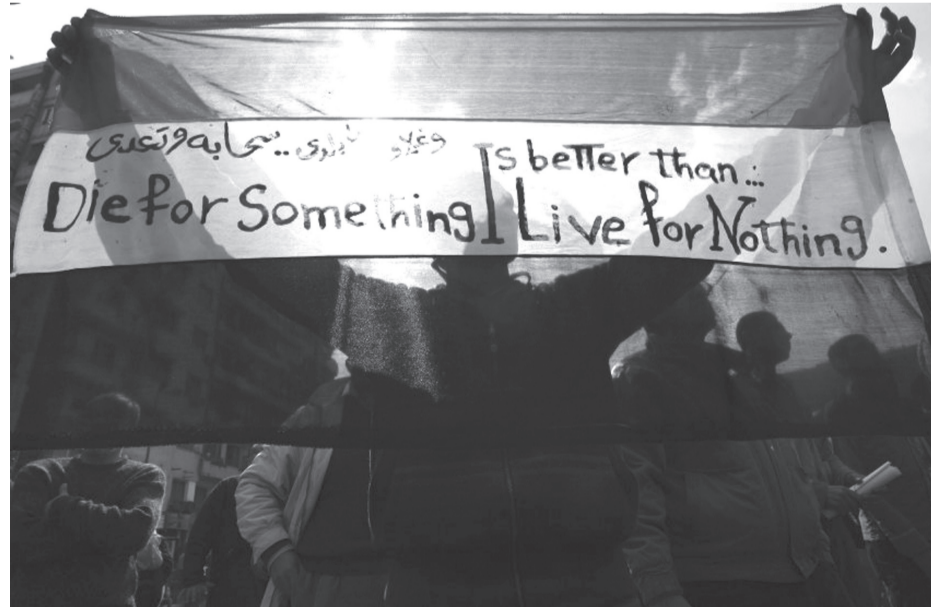 وغلاوة بلدى .. سحابه وتعدى
Die for Something
Is better than...
Live for Nothing.